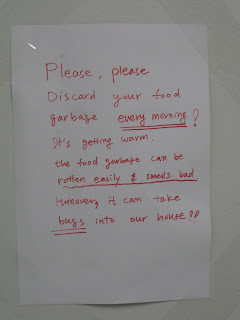 Please, please
Discard your food
garbage every morning!
It's getting warm.
the food garbage can be
rotten easily & smells bad.
Moreover, it can take
bugs into our house!!